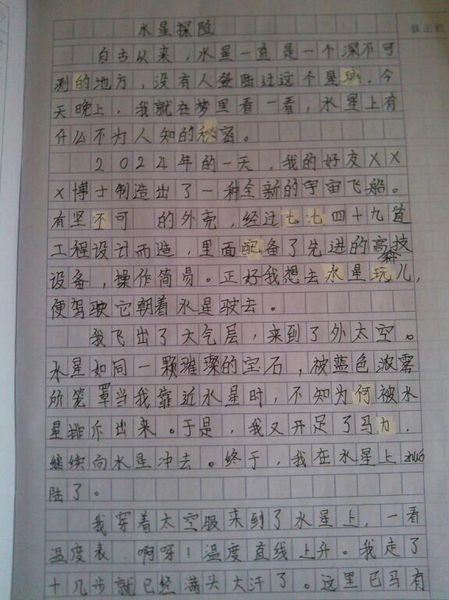 水星探险
自古以来，水星一直是一个深不可
测的地方，没有人登陆过这个星球。今
天晚上，我就在梦里看一看，水星上有
什么不为人知的秘密。
2024年的一天，我的好友XX
X博士制造出了一种全新的宇宙飞船。
有坚不可 的外壳，经过七七四十九道
工程设计而造，里面配备了先进的高技
设备，操作简易。正好我想去水星玩儿，
便驾驶它朝着水星驶去。
我飞出了大气层，来到了外太空。
水星如同一颗璀璨的宝石，被蓝色浓雾
所笼罩当我靠近水星时，不知为何被水
星排斥出来。于是，我又开足了马力，
继续向水星冲去。终于，我在水星上
陆了。
我穿着太空服来到了水星上，一看
温度表，啊呀！温度直线上升。我走了
十几步就已经满头大汗了。这里已马有